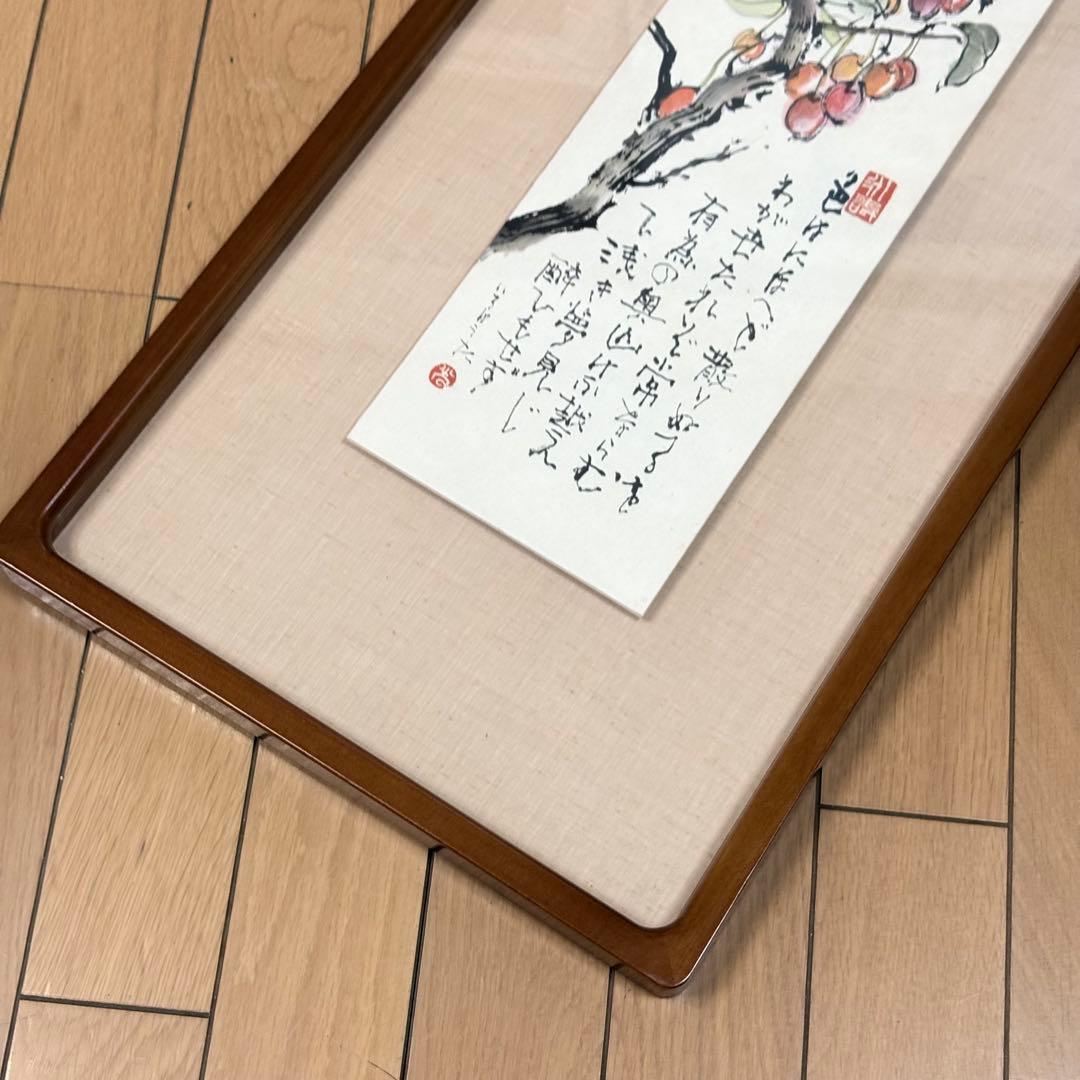 色はにほへど散りぬるを
わが世たれぞ常ならむ
有為の奥山けふ越え
て浅き夢見じ
酔ひもせず